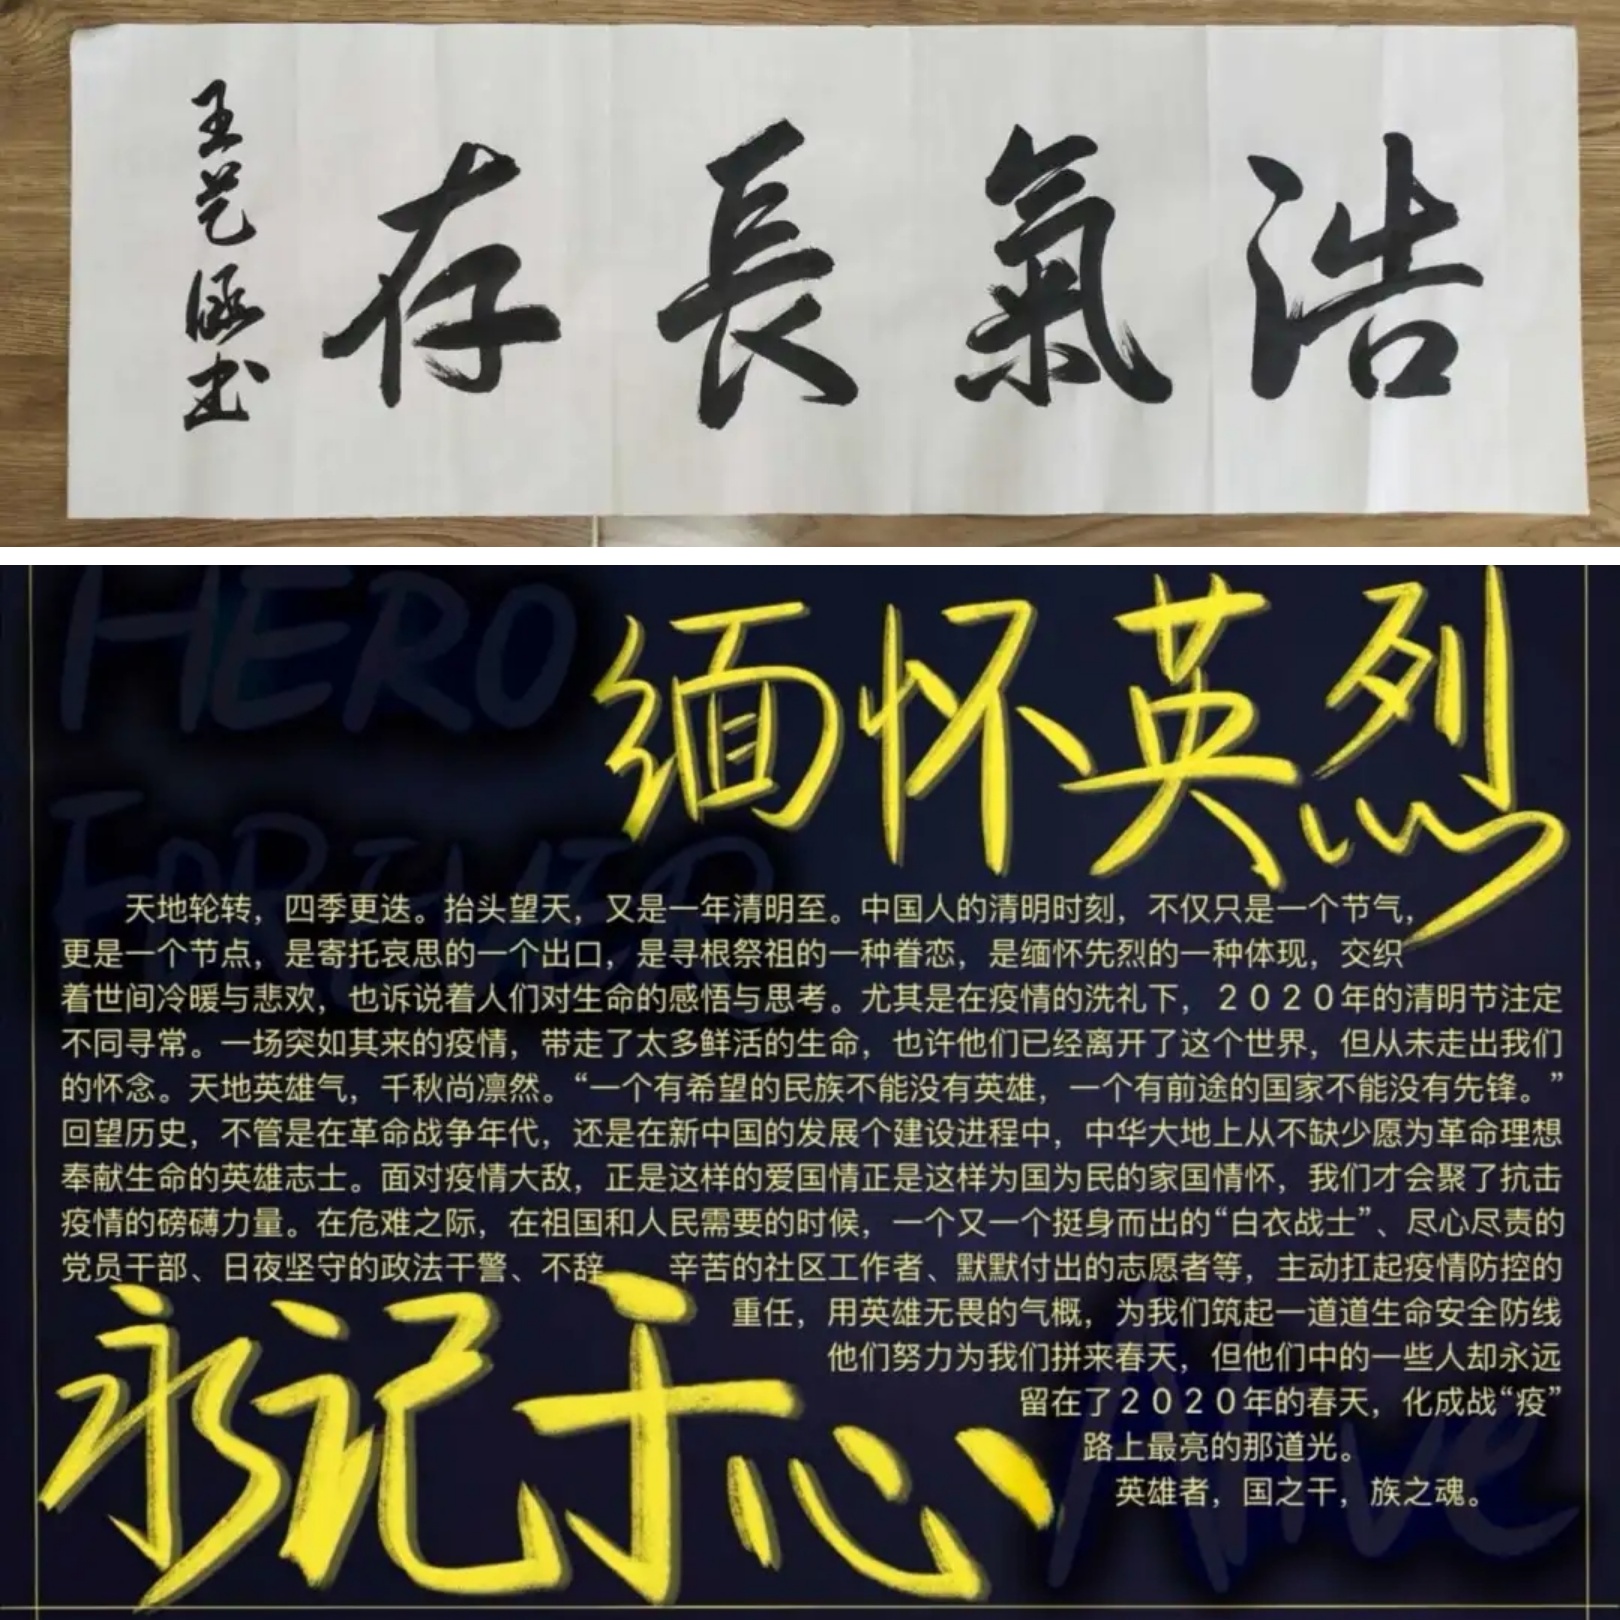 浩氣長存
王艺涵书
HERO
FOREVER
缅怀英烈
天地轮转，四季更迭。抬头望天，又是一年清明至。中国人的清明时刻，不仅只是一个节气，
更是一个节点，是寄托哀思的一个出口，是寻根祭祖的一种眷恋，是缅怀先烈的一种体现，交织
着世间冷暖与悲欢，也诉说着人们对生命的感悟与思考。尤其是在疫情的洗礼下，2020年的清明节注定
不同寻常。一场突如其来的疫情，带走了太多鲜活的生命，也许他们已经离开了这个世界，但从未走出我们
的怀念。天地英雄气，千秋尚凛然。“一个有希望的民族不能没有英雄，一个有前途的国家不能没有先锋。”
回望历史，不管是在革命战争年代，还是在新中国的发展个建设进程中，中华大地上从不缺少愿为革命理想
奉献生命的英雄志士。面对疫情大敌，正是这样的爱国情正是这样为国为民的家国情怀，我们才会聚了抗击
疫情的磅礴力量。在危难之际，在祖国和人民需要的时候，一个又一个挺身而出的“白衣战士”、尽心尽责的
党员干部、日夜坚守的政法干警、不辞辛苦的社区工作者、默默付出的志愿者等，主动扛起疫情防控的
重任，用英雄无畏的气概，为我们筑起一道道生命安全防线
他们努力为我们拼来春天，但他们中的一些人却永远
留在了2020年的春天，化成战“疫”
路上最亮的那道光。
英雄者，国之干，族之魂。
永记于心
Alive